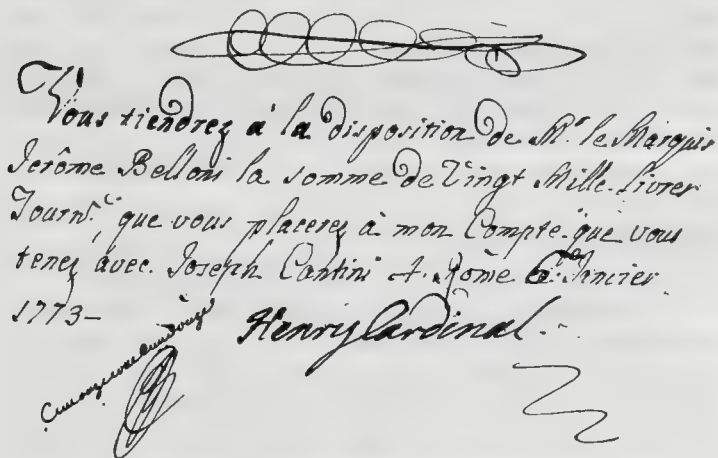 Vous tiendrez à la disposition de Mr. le Marquis
Jerôme Belloni la somme de Vingt Mille Livres
Tourn.s que vous placerez à mon Compte que vous
tenez avec Joseph Cantini
Rome 6 Janvier
1773-
Henry Cardinal